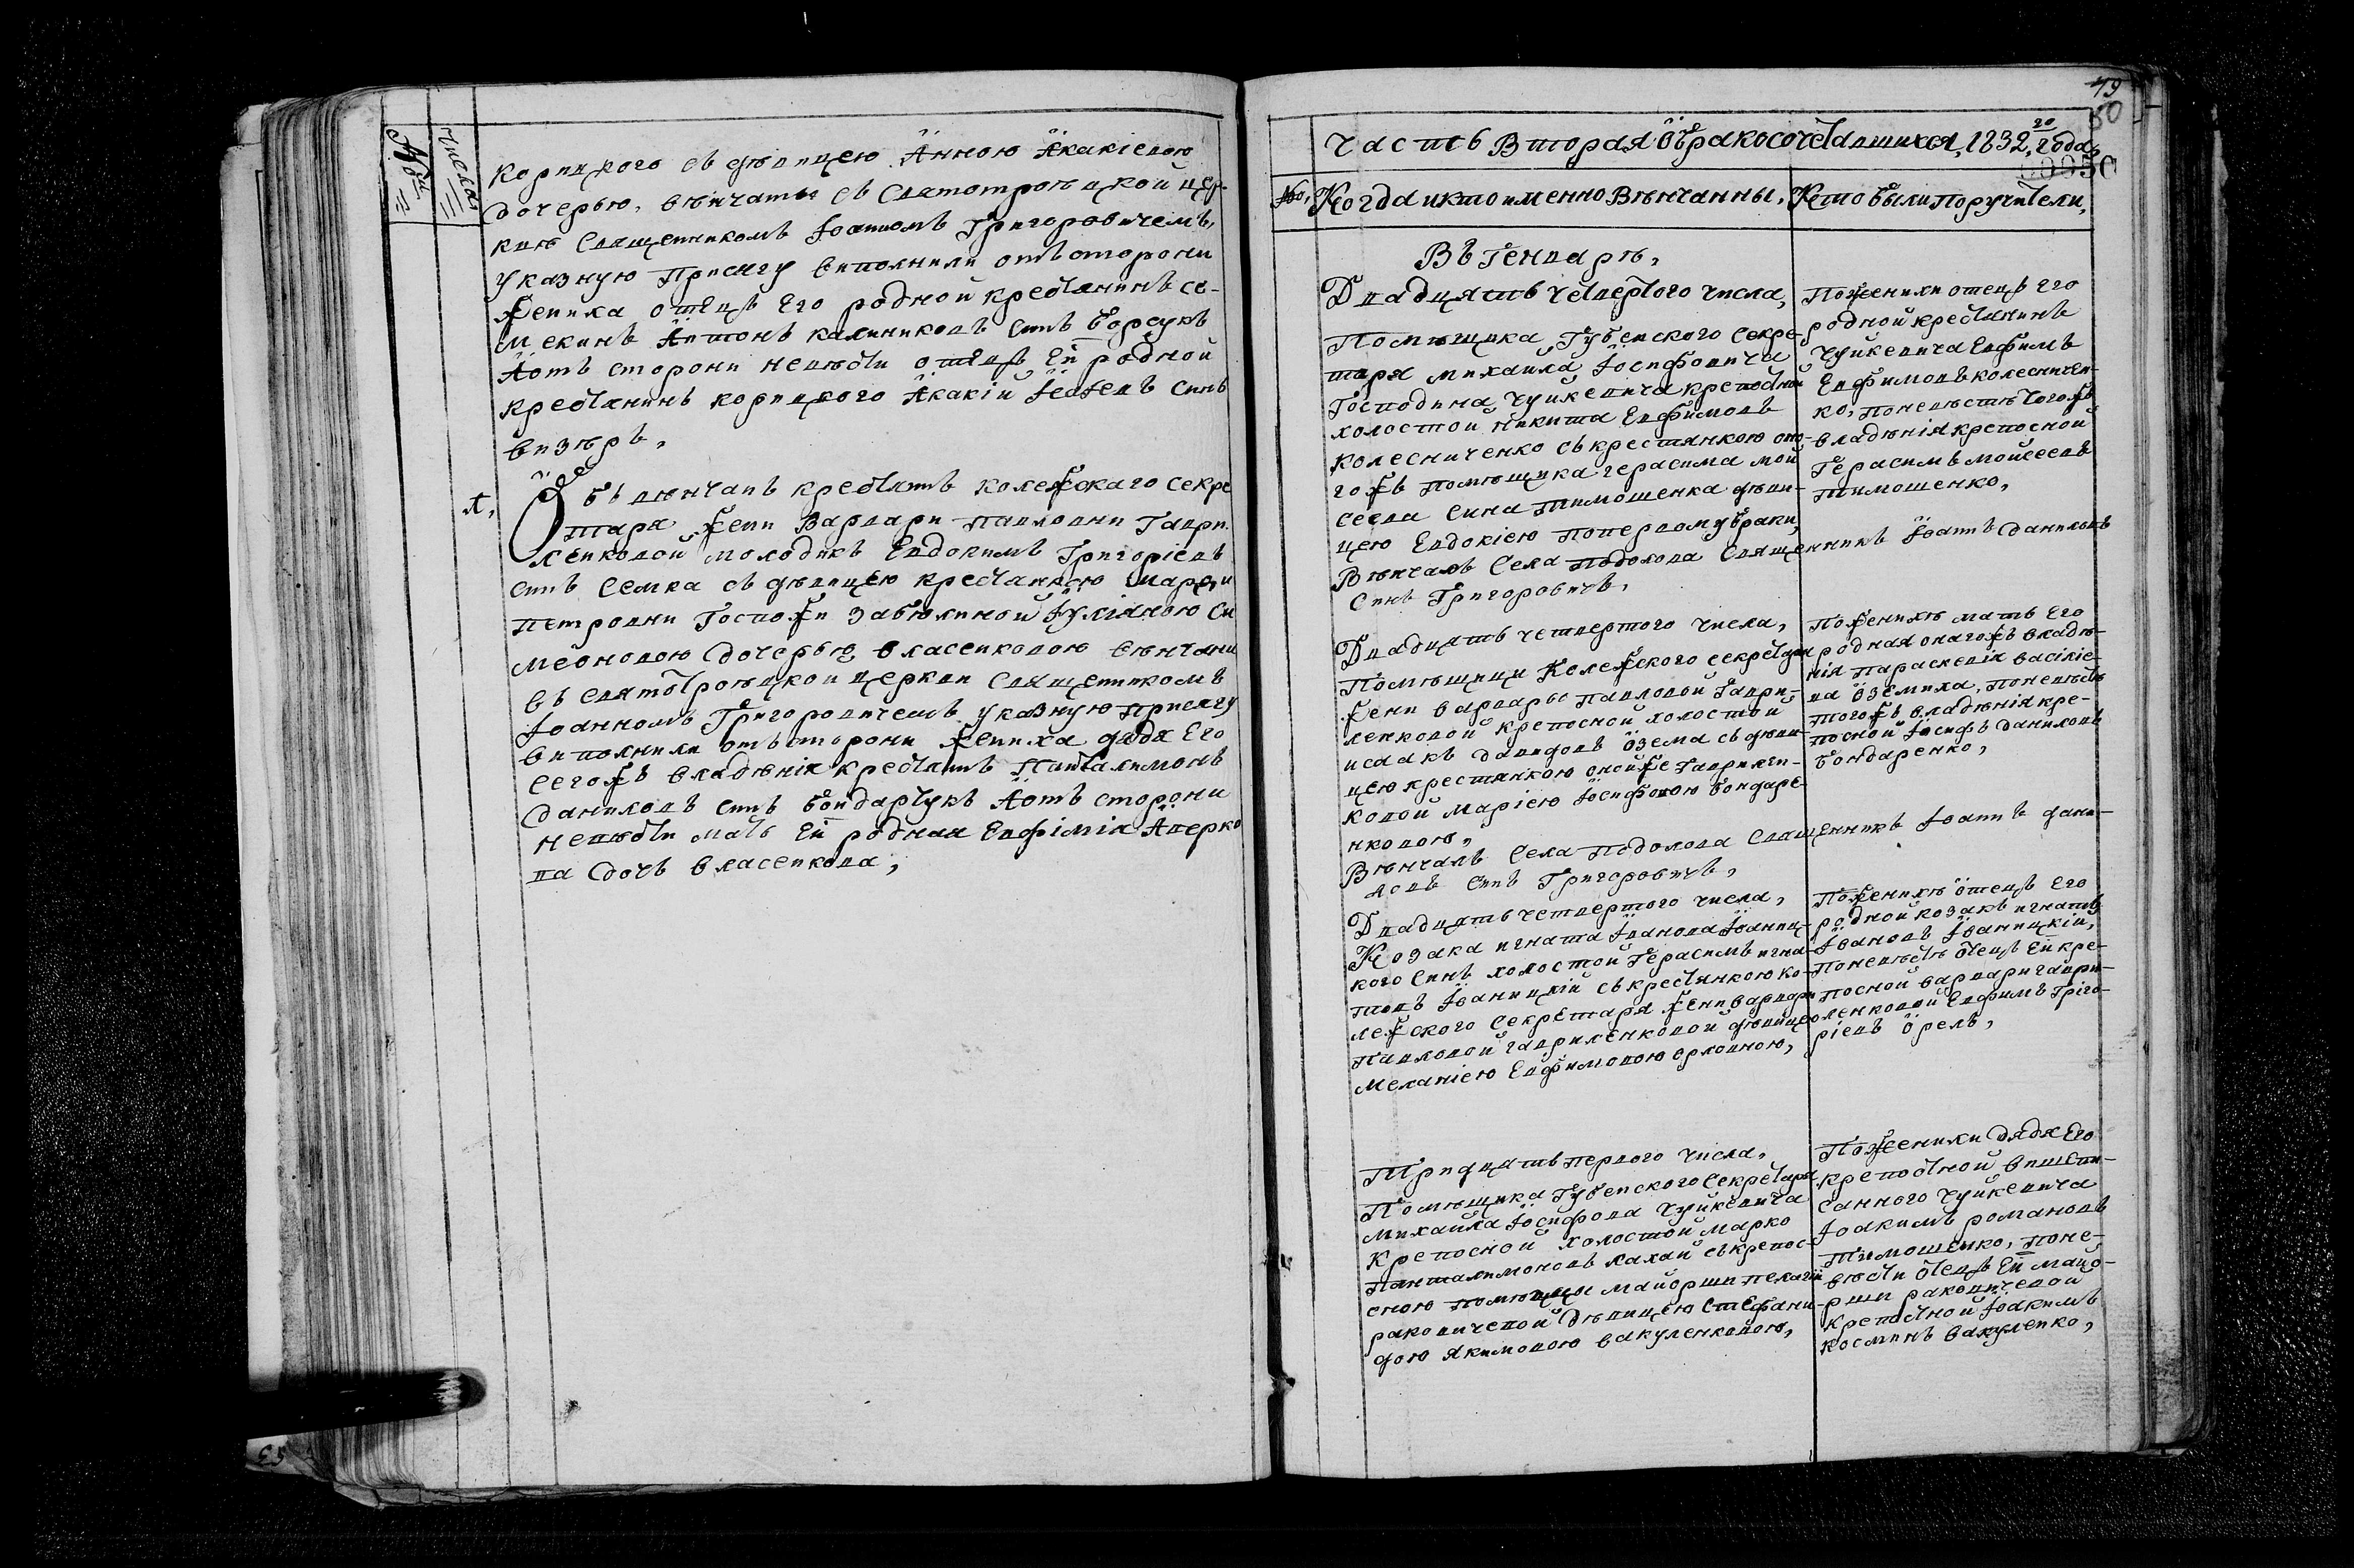 №
Числа
Корицкого съ дѣвицею Анною Акакіевою
дочерью, вѣнчаны въ Святотроицкой цер-
квѣ Священникомъ Іоанномъ Григоровичемъ,
указную присягу виполнили отъ сторони
жениха отецъ Его родной крестянинъ Се-
мекинъ Антонъ Калиниковъ синъ Борсукъ
А отъ сторони невѣсти отецъ Ей родной
крестянинъ Корицкого Акакій синъ
Визѣръ,
Л, Обвѣнчанъ крестянъ Колежскаго Секре
таря жени Варвари Павловни Гаври
ленковой молодикъ Евдокимъ Григоріевъ
синъ Семка съ дѣвицею крестянкою Марѳи
Петровни Госпожи Забѣлиной Іуліяною Си
меоновою дочерью Власенковою вѣнчани
въ Святотроицкой церкви Священникомъ
Іоанномъ Григоровичемъ указную присягу
виполнили отъ сторони жениха дядя Его
сегожъ владѣнія крестянъ Панталимонъ
Даниловъ синъ Бондарчукъ А отъ сторони
невѣсти мать Ей родная Евфімія Аверко
ва дочь Власенкова,
79
50
00050
Часть Вторая О бракосочетавшихся, 1832го года,
№, Когда и кто именно Вѣнчанны, Кто были поручители,
Въ Генварѣ,
Двадцять четвертого числа,
Помѣщика Губенского Секре-
таря Михаила Іосифовича
Господина Чуйкевича крепосной
холостой Никита Евфимовъ
Колесниченко съ крестянкою оно-
гожъ помѣщика Герасима Мой
сеева сина Тимошенка дѣви-
цею Евдокіею по первому браки,
Вѣнчалъ Села Подолова Священникъ Іоаннъ Даниловъ
Синъ Григоровичъ,
По женихи отецъ его
родной крестянинъ
Чуйкевича Евфимъ
Евфимовъ Колесничен-
ко, по невѣстѣ тогожъ
владѣнія крепосной
Герасимъ Мойсеевъ
Тимошенко,
Двадцять четвертого числа,
Помѣщици Колежского Секретаря
жени Варвары Павловой Гаври-
ленковой крепосной холостой
Исаакъ Давидовъ Озема съ дѣви-
цею крестянкою оной же Гаврилен-
ковой Маріею Іосифовою Бондаре-
нковою,
Вѣнчалъ Села Подолова Священникъ Іоаннъ Дани-
ловъ Синъ Григоровичъ,
По женихѣ мать Его
родная оногожъ владѣ-
нія Параскевія Васіліе-
ва Оземиха, по невѣстѣ
тогожъ владѣнія кре-
посной Іосифъ Даниловъ
Бондаренко,
Двадцять четвертого числа,
Козака Игната Іванова Іваниц-
кого Синъ холостой Герасимъ Игна-
товъ Іваницкій съ крестянкою Ко-
лежского Секретаря жени Варвари
Павловой Гавриленковой дѣвицею
Меланіею Евфимовою Орловною,
По женихѣ отецъ Его
родной козакъ Игнатъ
Івановъ Іваницкій,
по невѣстѣ отецъ Ей кре-
посной Варвари Гаври-
ленковой Евфимъ Гріго-
ріевъ Орелъ,
Тридцять первого числа,
Помѣщика Губенского Секретаря
Михаила Іосифова Чуйкевича
Крепосной холостой Марко
Панталимоновъ Махай съ крепос-
сною помѣщици Майорши Пелагіи
Раковичевой дѣвицею Стефани-
дою Якимовою Вакуленковою,
По женихи дядя Его
крепостной вишепи-
санного Чуйкевича
Іоакимъ Романовъ
Тимошенко, по не-
вѣсти отецъ Ей Майо-
рши Раковичевой
крепостной Іоакимъ
Косминъ Вакуленко,